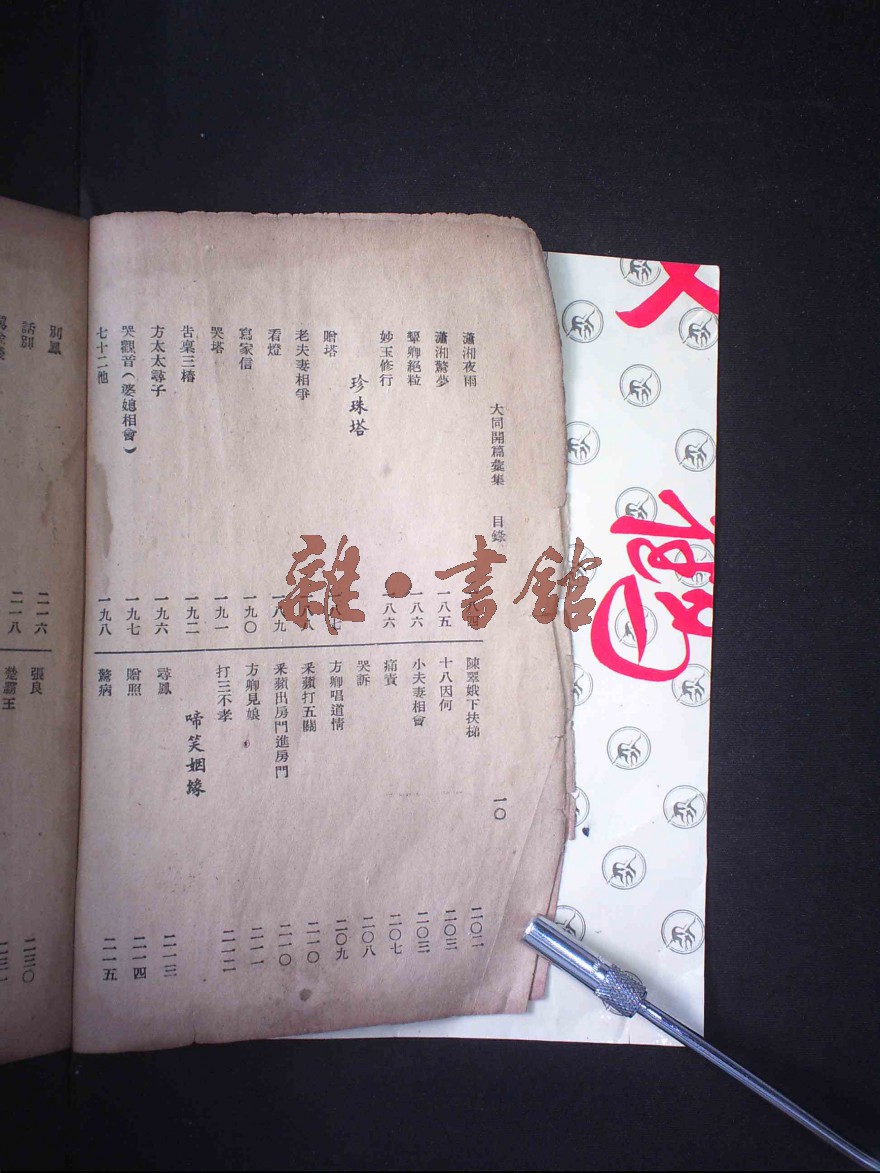 大同開篇彙集 目錄 一〇
瀟湘夜雨 八四
瀟湘驚夢 一八五
顰卿絕粒 一八六
妙玉修行 一八六
珍珠塔
贈塔 一八七
老夫妻相爭 一八八
看燈 一八九
寫家信 一九〇
哭塔 一九一
告稟三樁 一九二
方太太尋子 一九六
哭觀音(婆媳相會) 一九七
七十二他 一九八
陳翠娥下扶梯 二〇二
十八因何 二〇三
小夫妻相會 二〇三
痛責 二〇七
哭訴 二〇八
方卿唱道情 二〇九
釆蘋打五關 二一〇
釆蘋出房門進房門 二一〇
方卿見娘 二一一
打三不孝 二一二
啼笑姻緣
尋鳳 二一三
贈照 二一四
驚病 二一五
別鳳 二一六
話別 二一八
張良 二三〇
楚霸王
雜·書館